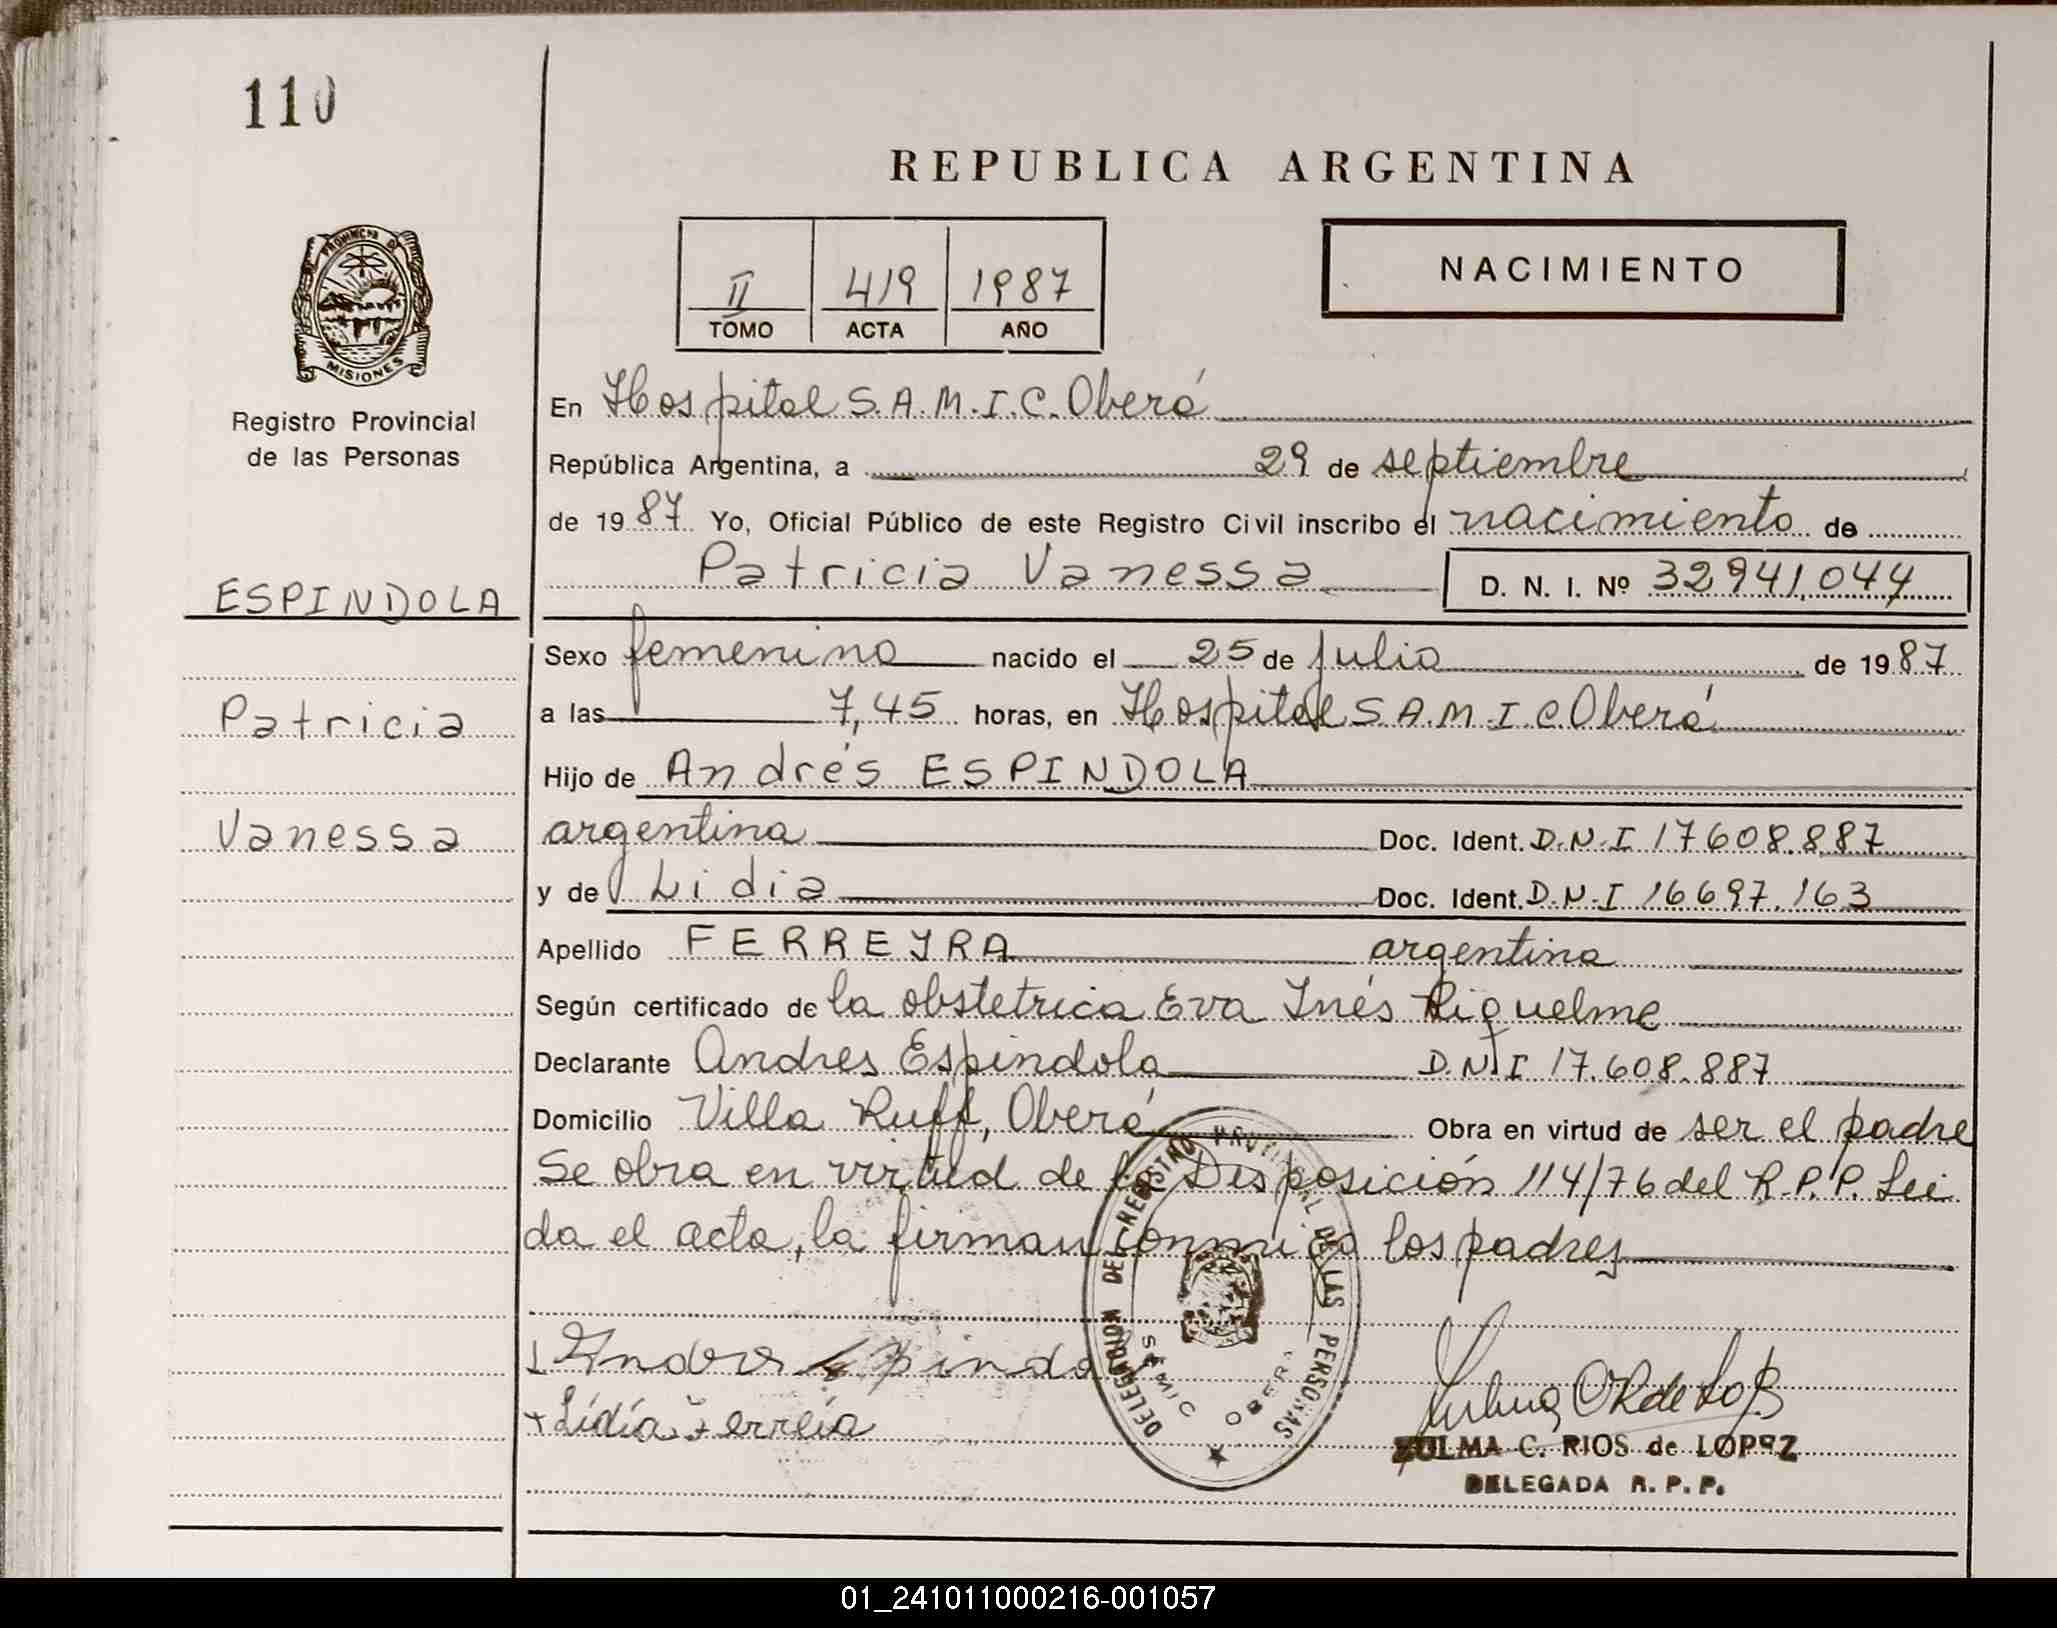 110
REPUBLICA ARGENTINA
II 419 1987
TOMO ACTA AÑO
NACIMIENTO
PROVINCIA DE
MISIONES
Registro Provincial
de las Personas
En Hospital S.A.M.I.C. Oberá
República Argentina, a 29 de septiembre
de 1987 Yo, Oficial Público de este Registro Civil inscribo el nacimiento de
Patricia Vanessa D. N. I. Nº 32941,044
ESPINDOLA
Patricia
Vanessa
Sexo femenino nacido el 25 de julio de 1987
a las 7,45 horas, en Hospital S A.M.I C Oberá
Hijo de Andrés ESPINDOLA
argentina Doc. Ident. D.N.I 17608.887
y de Lidia Doc. Ident. D.N.I 16697.163
Apellido FERREYRA argentina
Según certificado de la obstetrica Eva Inés Riquelme
Declarante Andres Espindola D.N.I 17.608.887
Domicilio Villa Ruff, Oberá Obra en virtud de ser el padre
Se obra en virtud de la Disposición 114/76 del R.P.P. Lei
da el acta, la firman conmigo los padres
DELEGACION DEL REGISTRO PROVINCIAL DE LAS PERSONAS
SÉMIC OBERA
Lidia Ferreia
ZULMA C. RIOS de LOPEZ
DELEGADA R. P. P.
01_241011000216-001057